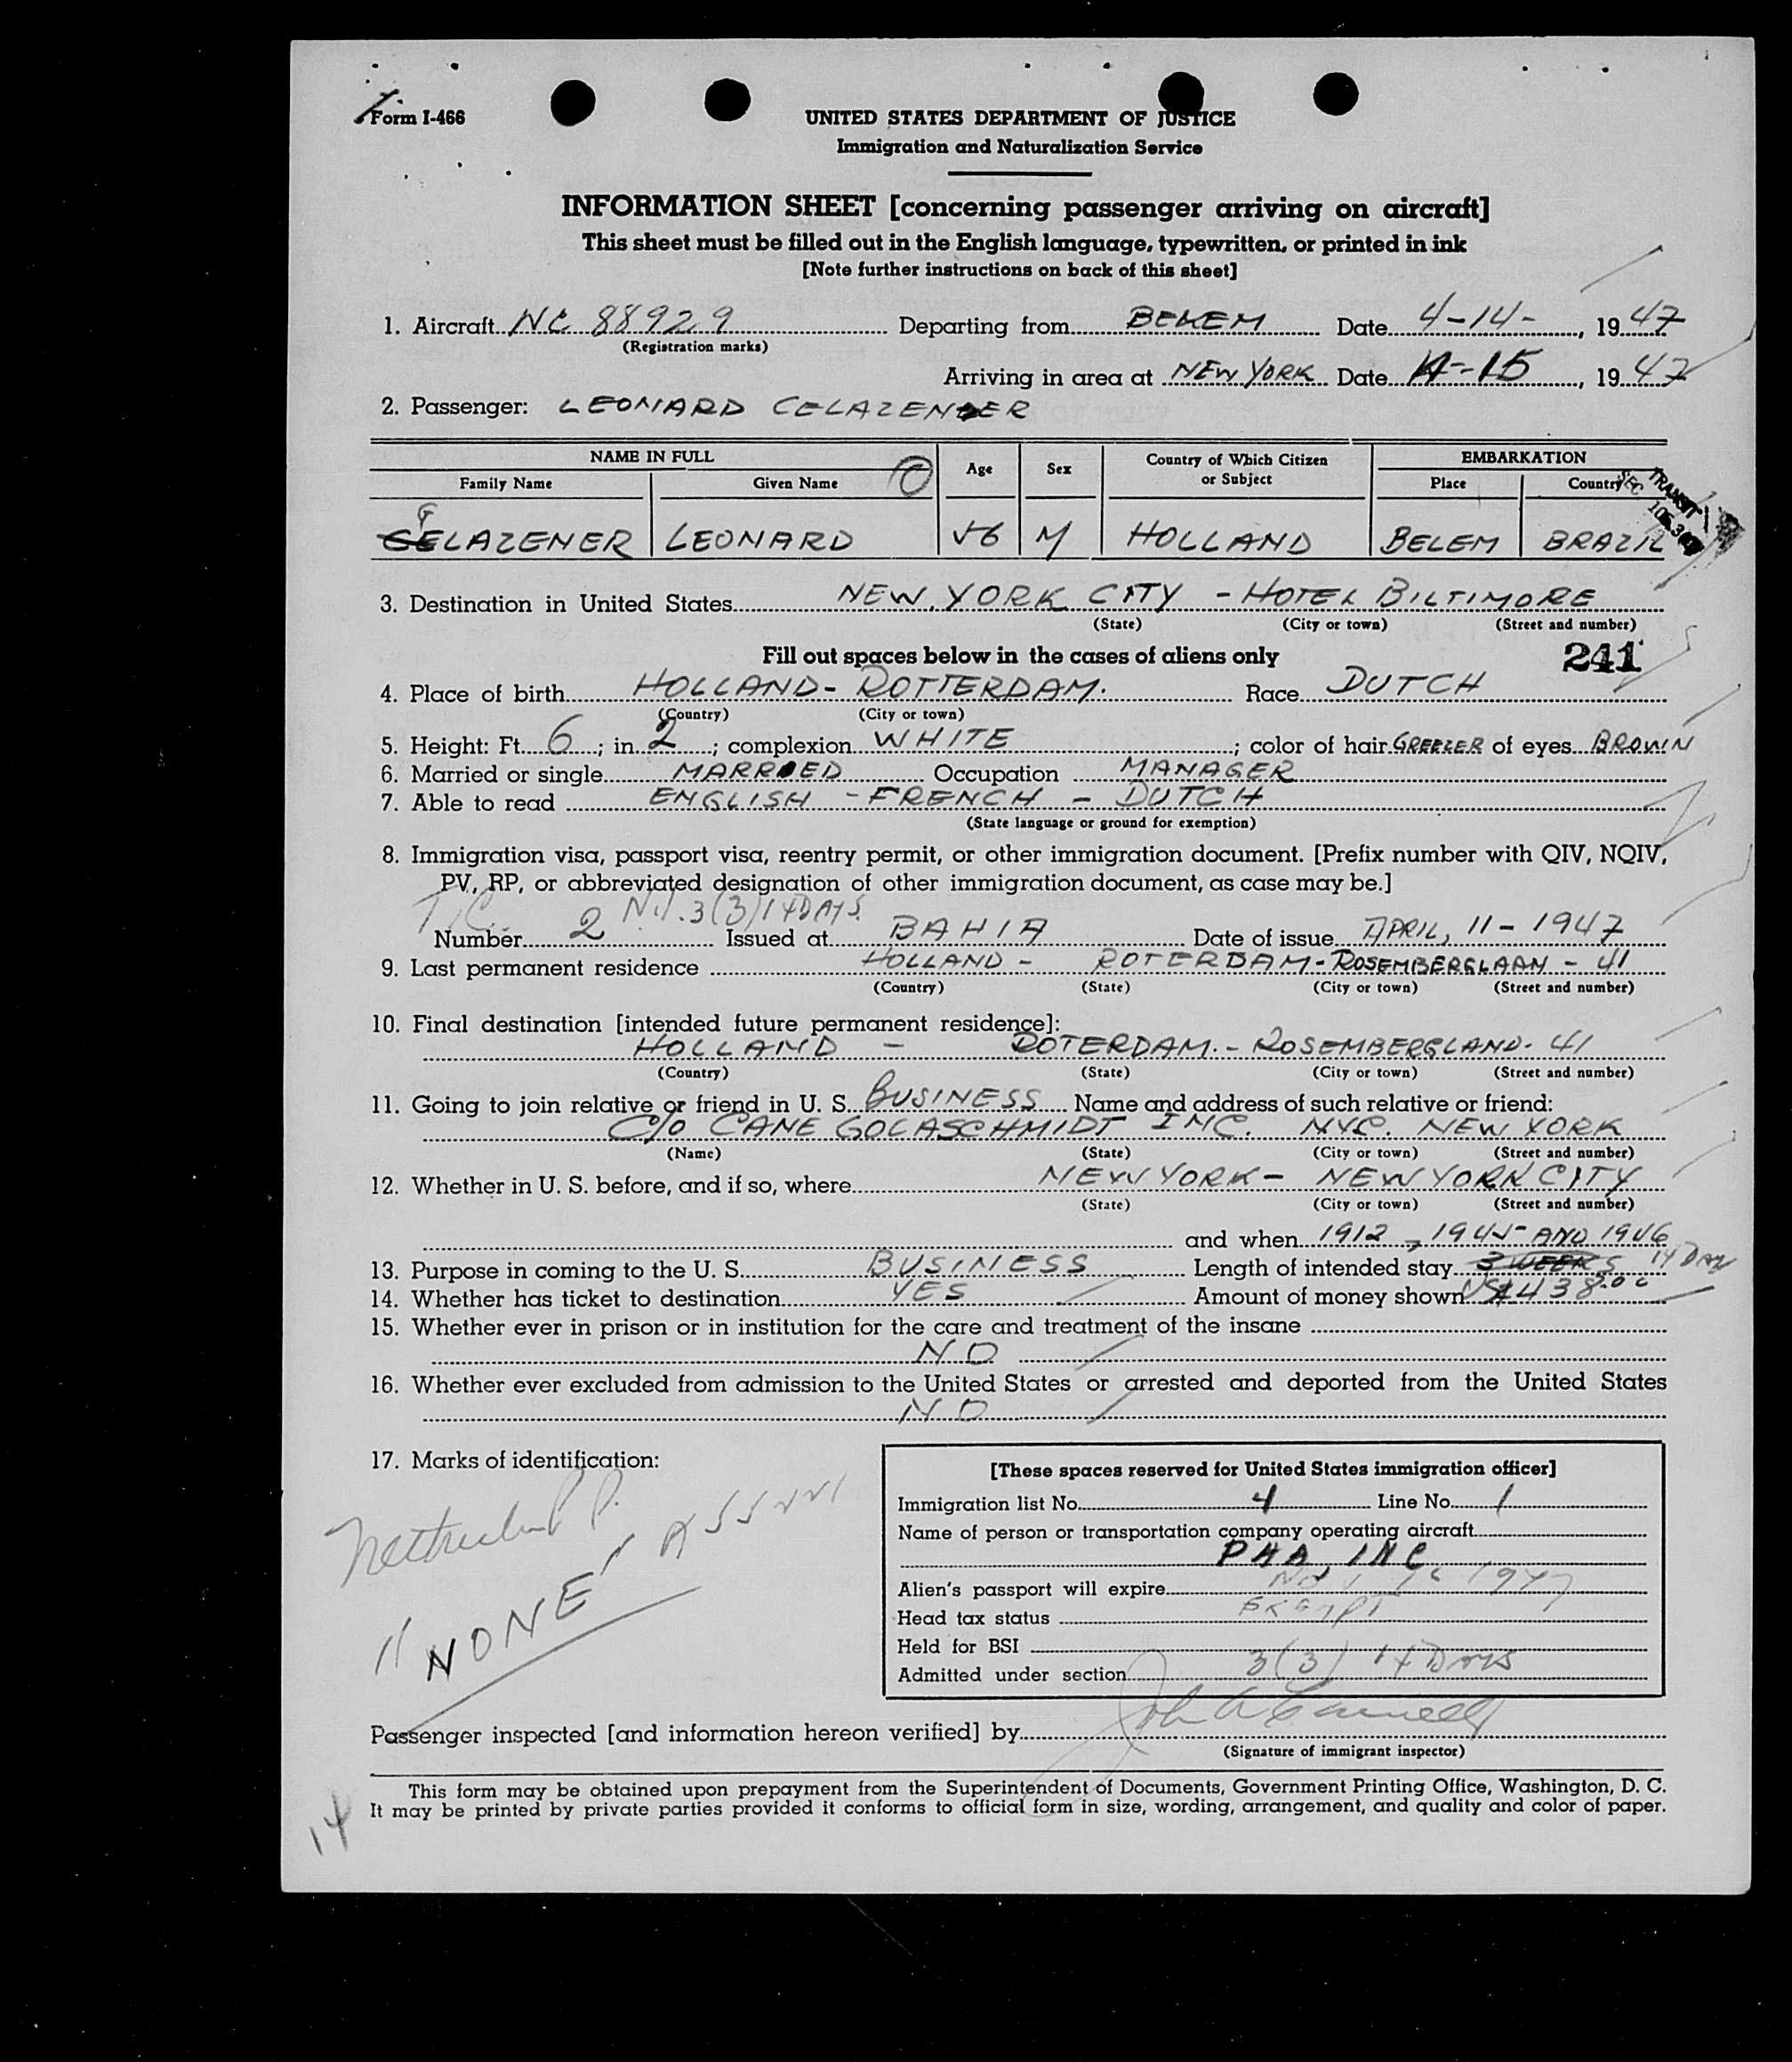 Form I-466
UNITED STATES DEPARTMENT OF JUSTICE
Immigration and Naturalization Service
INFORMATION SHEET [concerning passenger arriving on aircraft]
This sheet must be filled out in the English language, typewritten, or printed in ink
[Note further instructions on back of this sheet]
1. Aircraft NC 88929 Departing from BELEM Date 4-14-, 1947
(Registration marks)
Arriving in area at NEW YORK Date 4-15, 1947
2. Passenger: LEONARD CELAZENER
NAME IN FULL Age Sex Country of Which Citizen or Subject EMBARKATION
Family Name Given Name Place Country
TRANSIT
SEC
G
ELAZENER LEONARD 56 M HOLLAND BELEM BRAZIL
3. Destination in United States NEW YORK CITY - HOTEL BILTIMORE
(State) (City or town) (Street and number)
Fill out spaces below in the cases of aliens only 241
4. Place of birth HOLLAND - ROTTERDAM. Race DUTCH
(Country) (City or town)
5. Height: Ft. 6; in. 2; complexion WHITE; color of hair GREEZER of eyes BROWN
6. Married or single MARRIED Occupation MANAGER
7. Able to read ENGLISH - FRENCH - DUTCH
(State language or ground for exemption)
8. Immigration visa, passport visa, reentry permit, or other immigration document. [Prefix number with QIV, NQIV,
PV, RP, or abbreviated designation of other immigration document, as case may be.]
3(3) 14 DAYS
Number 2 Issued at BAHIA Date of issue APRIL, 11-1947
9. Last permanent residence HOLLAND - ROTERDAM - ROSEMBERGLAAN - 41
(Country) (State) (City or town) (Street and number)
10. Final destination [intended future permanent residence]:
HOLLAND - ROTERDAM. - ROSEMBERGLAND. 41
(Country) (State) (City or town) (Street and number)
11. Going to join relative or friend in U. S. BUSINESS Name and address of such relative or friend:
C/O CANE GOLASCHMIDT INC. NYC. NEW YORK
(Name) (State) (City or town) (Street and number)
12. Whether in U. S. before, and if so, where NEW YORK - NEW YORK CITY
(State) (City or town) (Street and number)
and when 1912, 1945 AND 1946
13. Purpose in coming to the U. S. BUSINESS Length of intended stay 3 WEEKS 14 DAY
14. Whether has ticket to destination YES Amount of money shown US$438.00
15. Whether ever in prison or in institution for the care and treatment of the insane
NO
16. Whether ever excluded from admission to the United States or arrested and deported from the United States
NO
17. Marks of identification:
"NONE"
[These spaces reserved for United States immigration officer]
Immigration list No. 4 Line No. 1
Name of person or transportation company operating aircraft
PAA, INC
Alien's passport will expire Nov 1947
Head tax status EXEMPT
Held for BSI
Admitted under section 3(3) 14 DAYS
Passenger inspected [and information hereon verified] by
(Signature of immigrant inspector)
This form may be obtained upon prepayment from the Superintendent of Documents, Government Printing Office, Washington, D. C.
It may be printed by private parties provided it conforms to official form in size, wording, arrangement, and quality and color of paper.
14